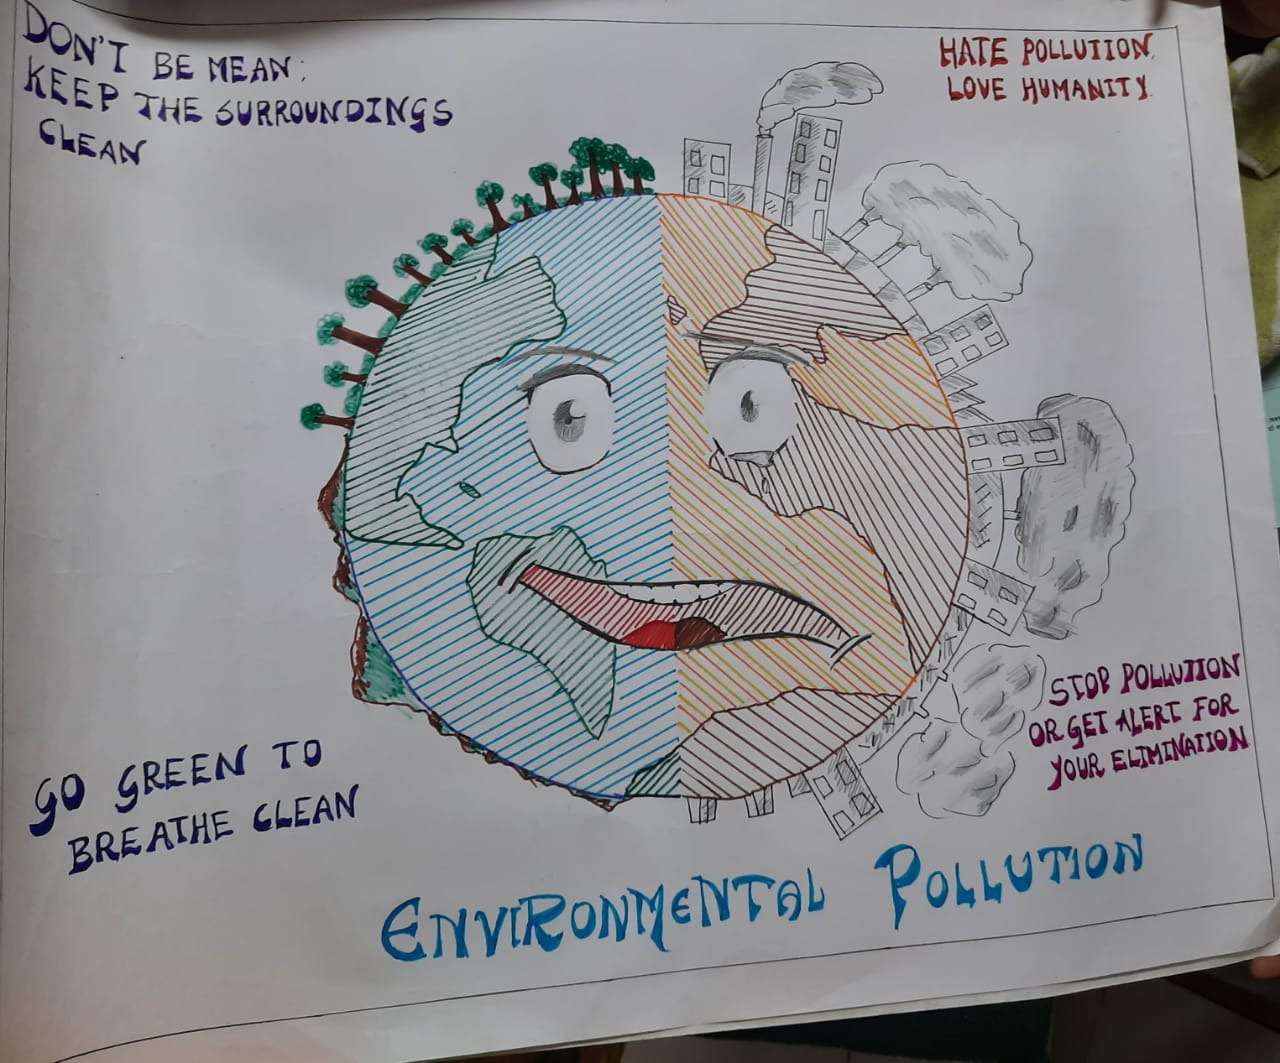 DON'T BE MEAN;
KEEP THE SURROUNDINGS
CLEAN
HATE POLLUTION,
LOVE HUMANITY.
STOP POLLUTION
OR GET ALERT FOR
YOUR ELIMINATION
GO GREEN TO
BREATHE CLEAN
ENVIRONMENTAL POLLUTION